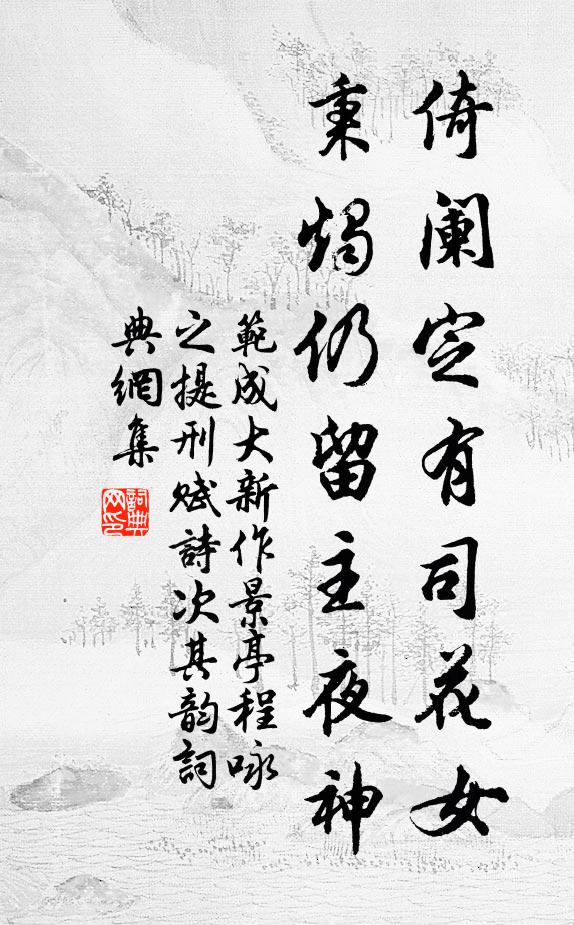 倚阑定有司花女
秉烛仍留主夜神
範成大新作景亭程咏
之提刑赋詩次其韵詞
典網集
詞典网印